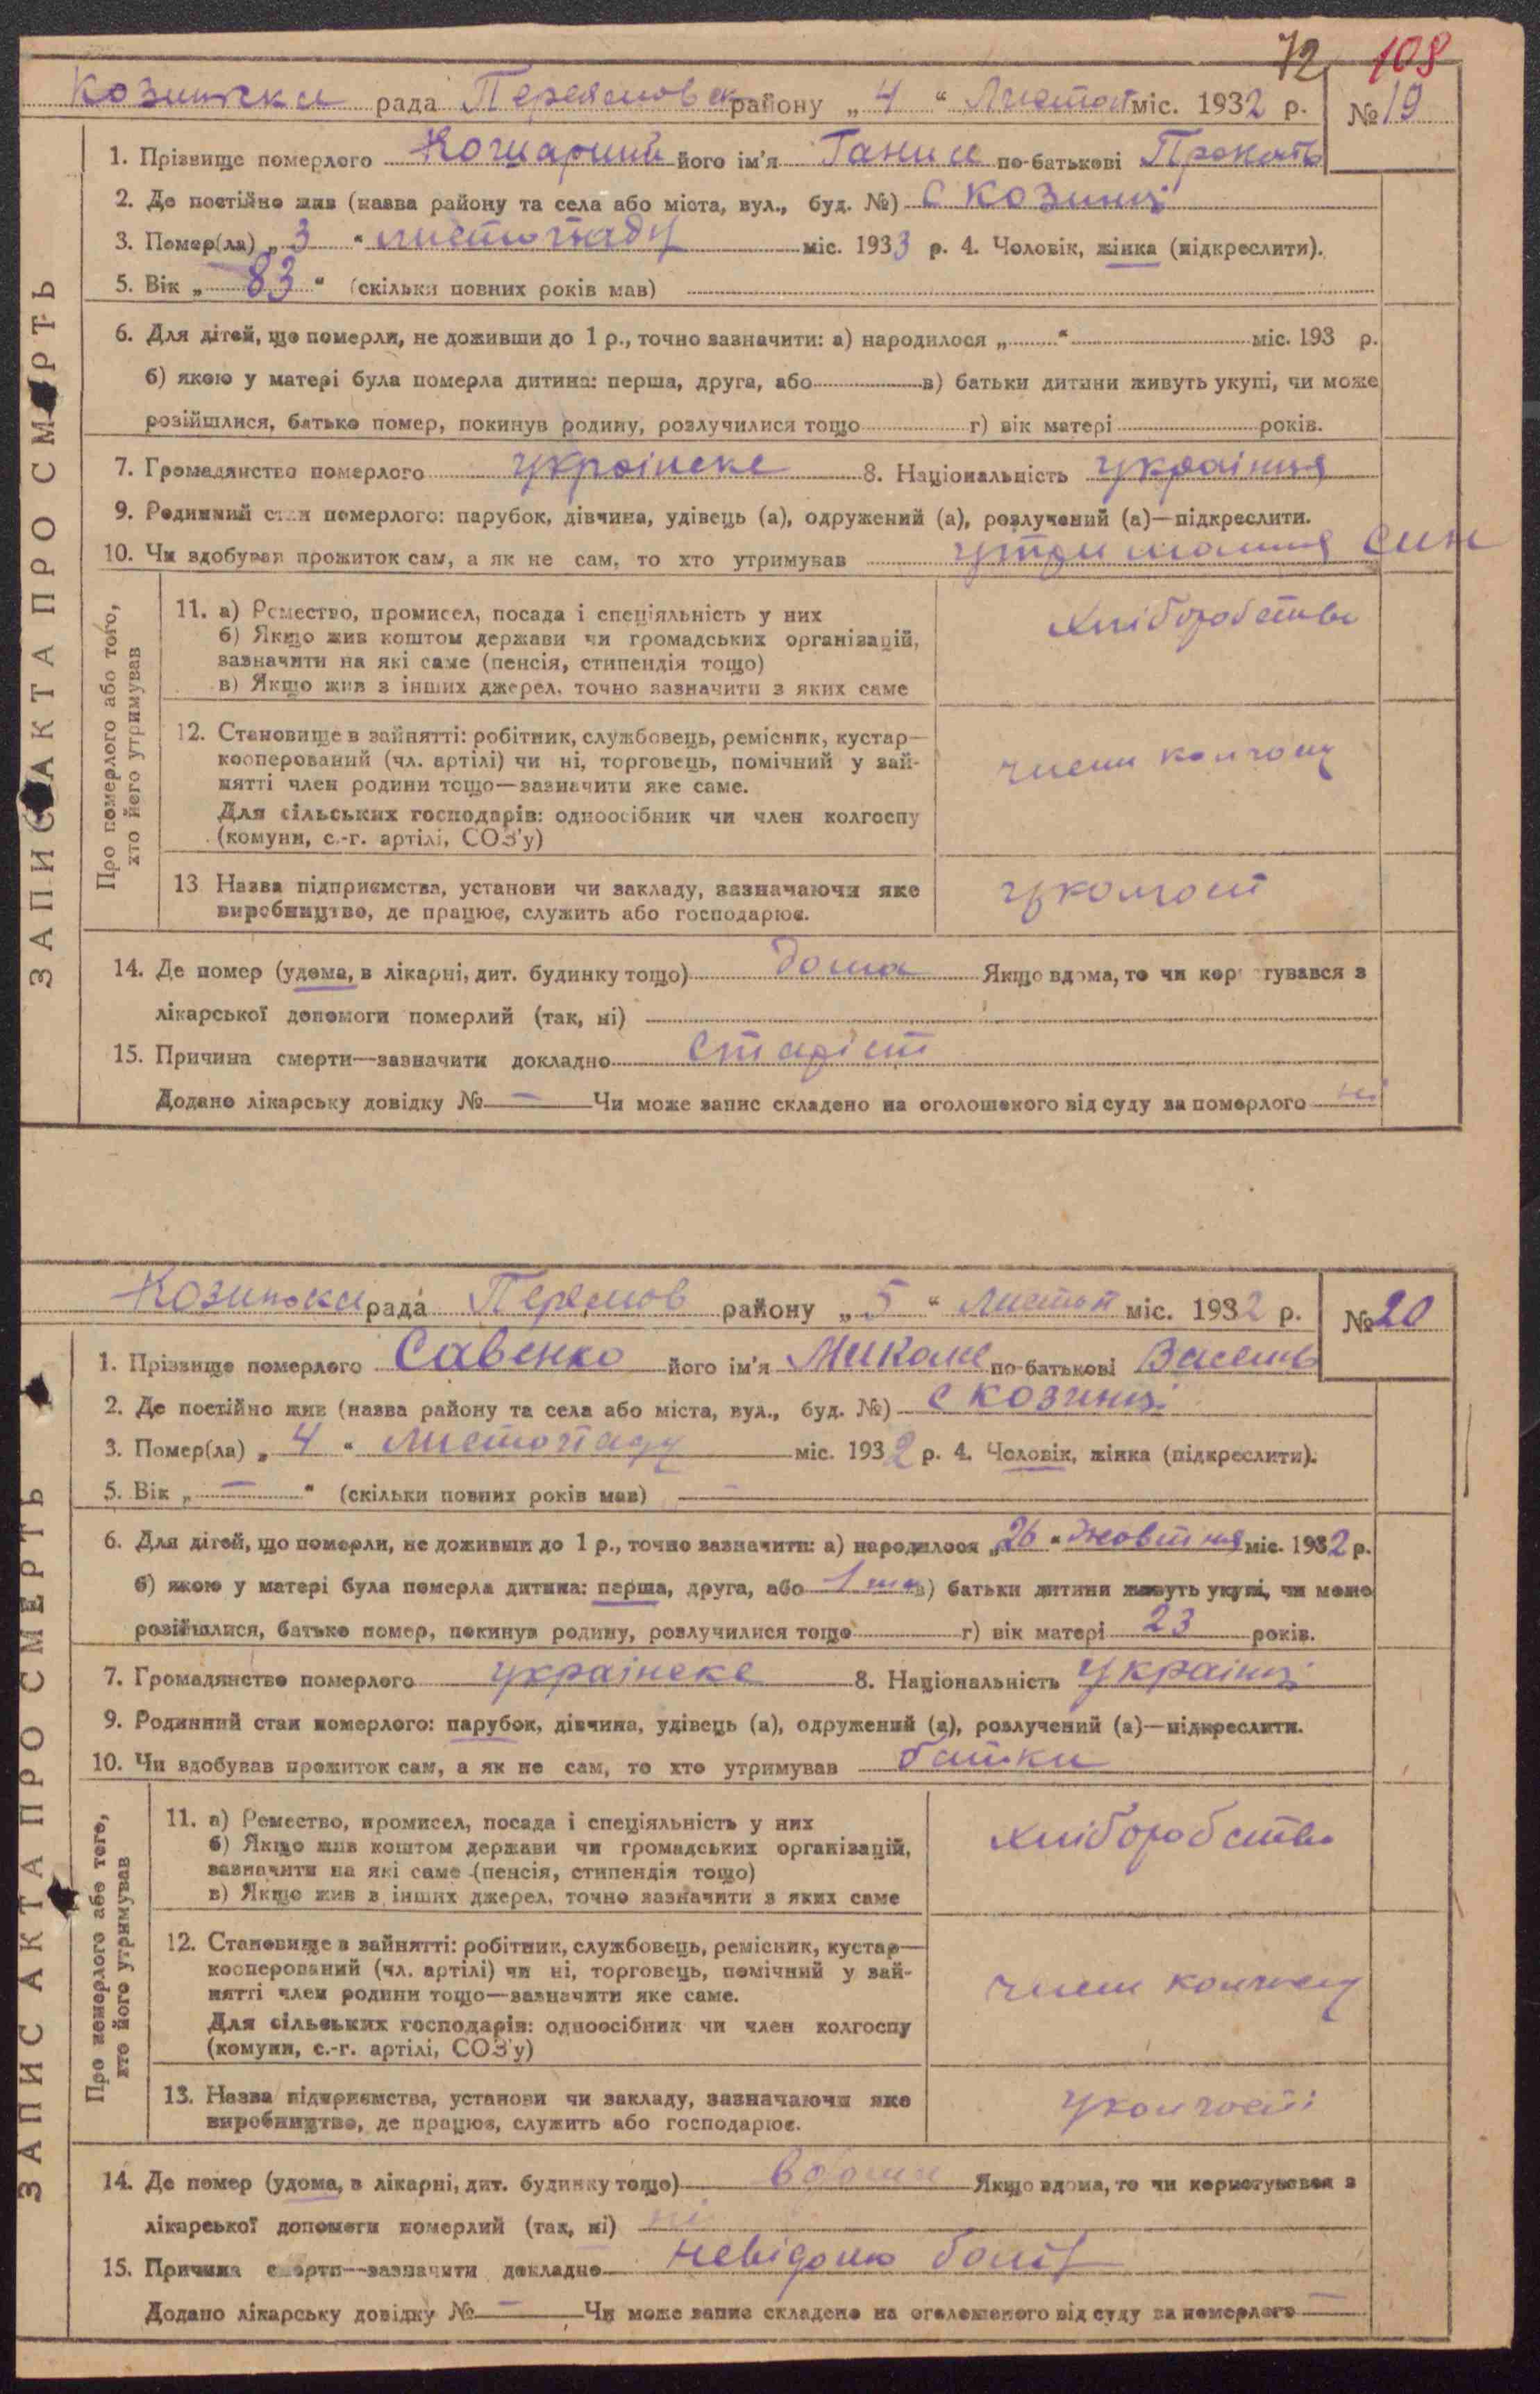 72 108
Козинська рада Переяслов ск району „ 4 “ Листоп міс. 1932 р. № 19
1. Прізвище померлого Кошарний його ім'я Ганна по-батькові Прокопів
2. Де постійно жив (назва району та села або міста, вул., буд. №) с Козинці
3. Помер(ла) „ 3 “ листопаду міс. 1933 р. 4. Чоловік, жінка (підкреслити).
5. Вік „ 83 “ (скільки повних років мав)
6. Для дітей, що померли, не доживши до 1 р., точно зазначити: а) народилося „ “ міс. 193 р.
б) якою у матері була померла дитина: перша, друга, або в) батьки дитини живуть укупі, чи може
розійшлися, батько помер, покинув родину, розлучилися тощо г) вік матері років.
7. Громадянство померлого українське 8. Національність українця
9. Родинний стан померлого: парубок, дівчина, удівець (а), одружений (а), розлучений (а)—підкреслити.
10. Чи здобував прожиток сам, а як не сам, то хто утримував син
ЗАПИС АКТА ПРО СМЕРТЬ
Про померлого або того, хто його утримував
11. а) Ремество, промисел, посада і спеціяльність у них
б) Якщо жив коштом держави чи громадських організацій,
зазначити на які саме (пенсія, стипендія тощо)
в) Якщо жив з інших джерел, точно зазначити з яких саме
хліборобство
12. Становище в зайнятті: робітник, службовець, ремісник, кустар—
кооперований (чл. артілі) чи ні, торговець, помічний у зай-
нятті член родини тощо—зазначити яке саме.
Для сільських господарів: одноосібник чи член колгоспу
(комуни, с.-г. артілі, СОЗ'у)
член колгоспу
13 Назва підприємства, установи чи закладу, зазначаючи яке
виробництво, де працює, служить або господарює.
у колгоспі
14. Де помер (удома, в лікарні, дит. будинку тощо) дома Якщо вдома, то чи користувався з
лікарської допомоги померлий (так, ні)
15. Причина смерти—зазначити докладно старість
Додано лікарську довідку № — Чи може запис складено на оголошеного від суду за померлого ні
Козинська рада Переяслов району „ 5 “ листоп міс. 1932 р. № 20
1. Прізвище померлого Савенко його ім'я Микола по-батькові Василів
2. Де постійно жив (назва району та села або міста, вул., буд. №) с Козинці
3. Помер(ла) „ 4 “ листопаду міс. 1932 р. 4. Чоловік, жінка (підкреслити).
5. Вік „ — “ (скільки повних років мав) —
6. Для дітей, що померли, не доживши до 1 р., точно зазначити: а) народилося „ 26 “ жовтня міс. 1932 р.
б) якою у матері була померла дитина: перша, друга, або 1 в) батьки дитини живуть укупі, чи може
розійшлися, батько помер, покинув родину, розлучилися тощо г) вік матері 23 років.
7. Громадянство померлого українське 8. Національність українці
9. Родинний стан померлого: парубок, дівчина, удівець (а), одружений (а), розлучений (а)—підкреслити.
10. Чи здобував прожиток сам, а як не сам, то хто утримував батьки
ЗАПИС АКТА ПРО СМЕРТЬ
Про померлого або того, хто його утримував
11. а) Ремество, промисел, посада і спеціяльність у них
б) Якщо жив коштом держави чи громадських організацій,
зазначити на які саме (пенсія, стипендія тощо)
в) Якщо жив з інших джерел, точно зазначити з яких саме
хліборобство
12. Становище в зайнятті: робітник, службовець, ремісник, кустар—
кооперований (чл. артілі) чи ні, торговець, помічний у зай-
нятті член родини тощо—зазначити яке саме.
Для сільських господарів: одноосібник чи член колгоспу
(комуни, с.-г. артілі, СОЗ'у)
член колгоспу
13. Назва підприємства, установи чи закладу, зазначаючи яке
виробництво, де працює, служить або господарює.
у колгоспі
14. Де помер (удома, в лікарні, дит. будинку тощо) вдома Якщо вдома, то чи користувався з
лікарської допомоги померлий (так, ні) ні
15. Причина смерти—зазначити докладно невідомо
Додано лікарську довідку № — Чи може запис складено на оголошеного від суду за померлого —